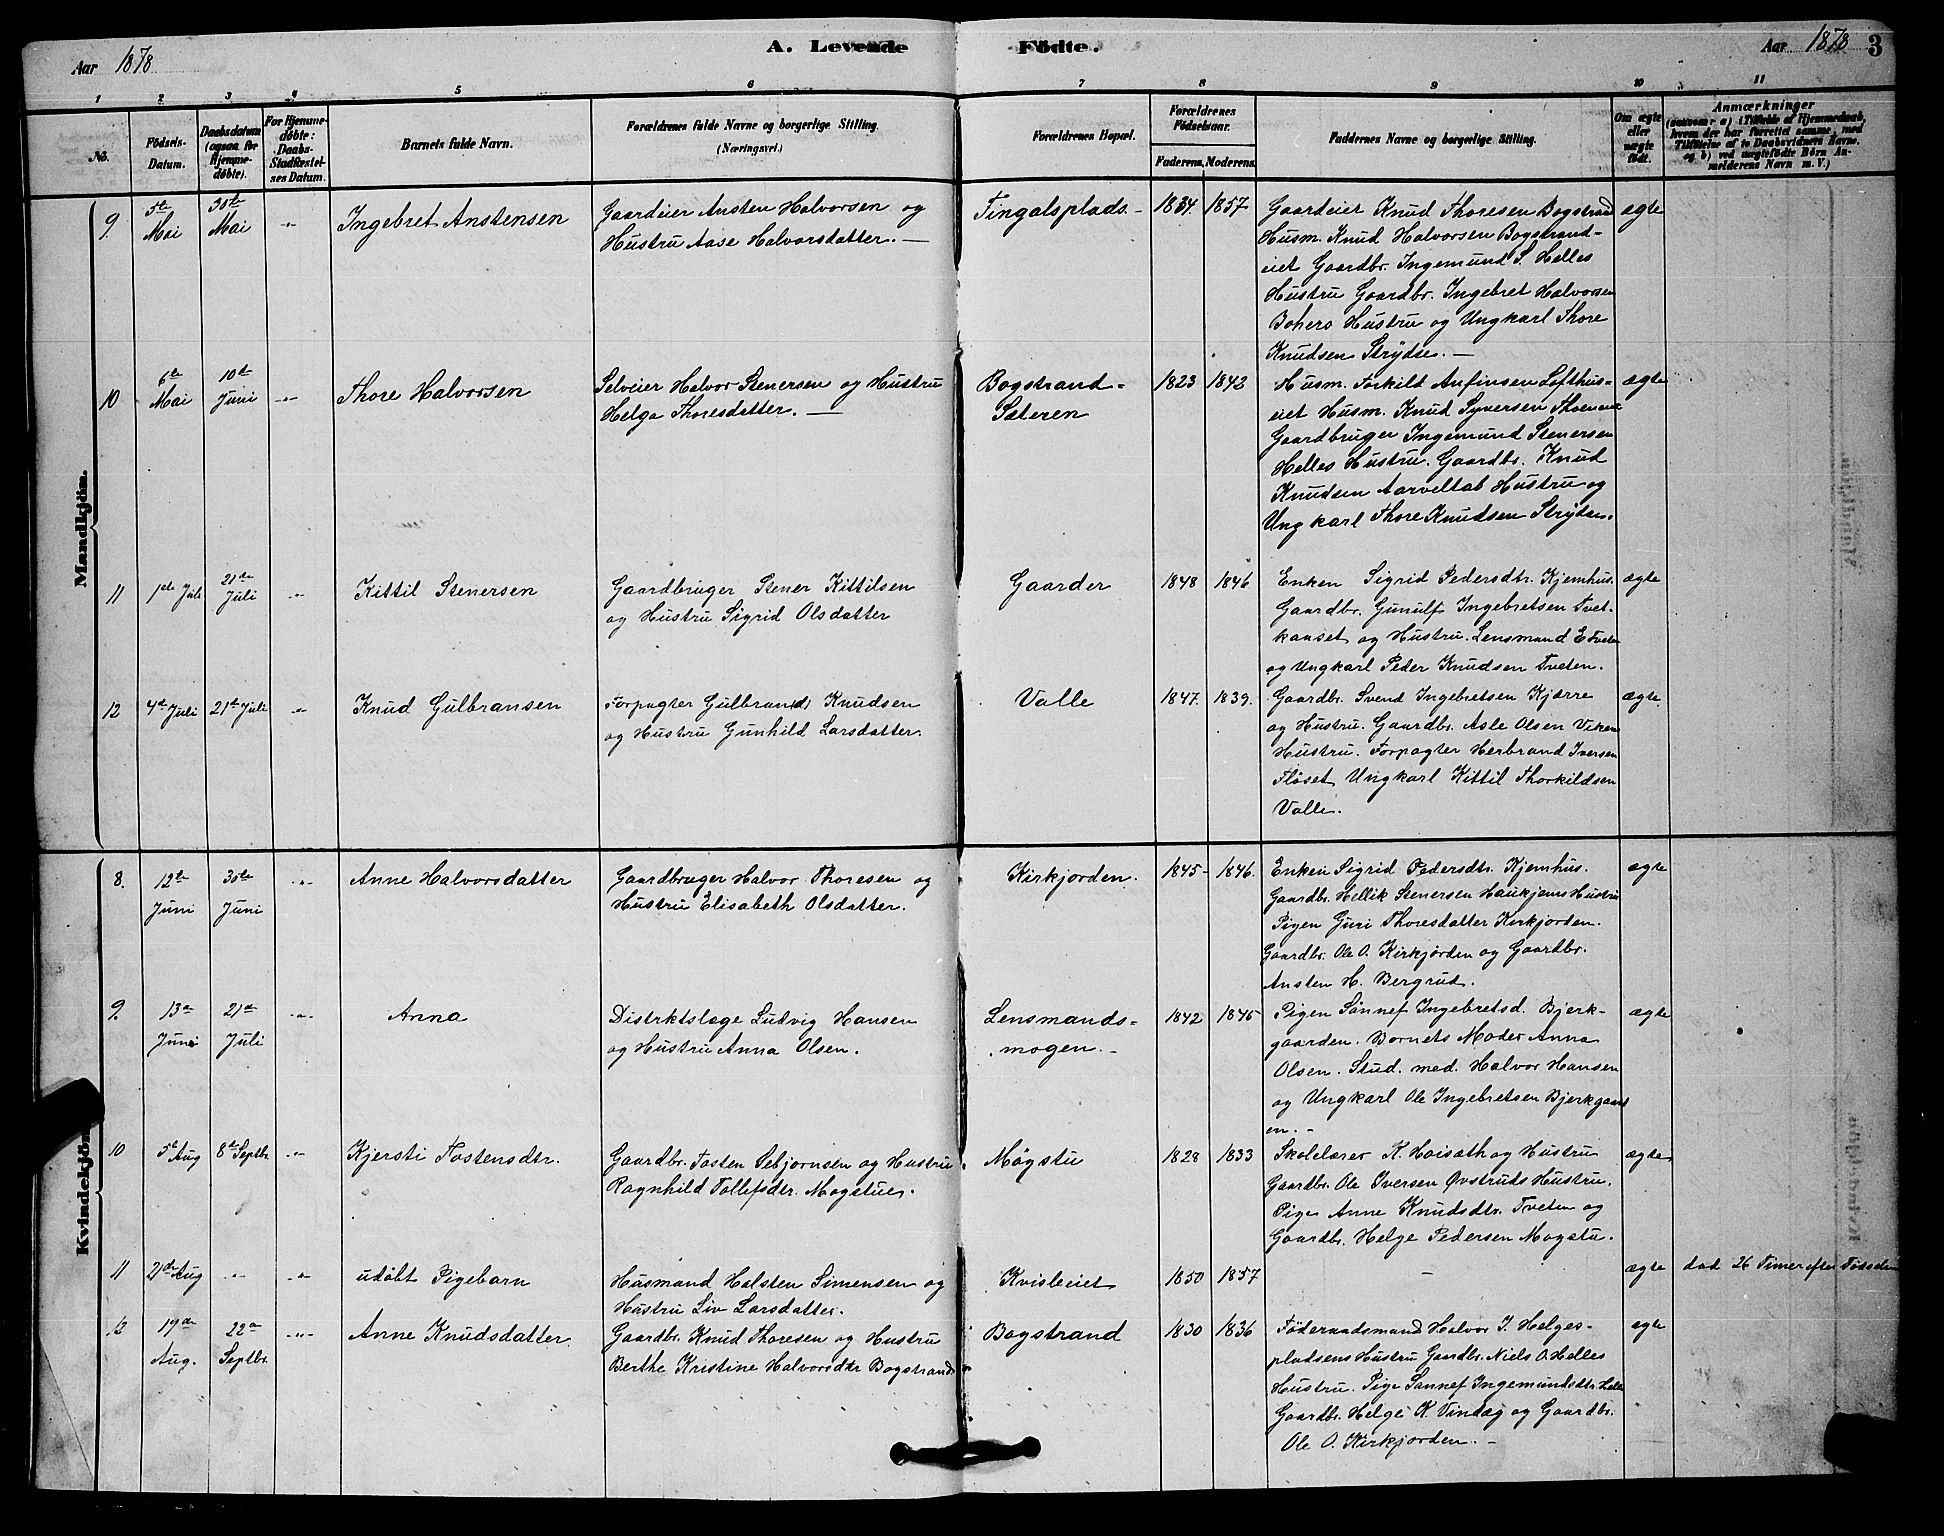 Aar 1878
A. Levende Födte.
Aar 1878 3
1 2 3 4 5 6 7 8 9 10 11
No.
Födsels-
Datum.
Daabsdatum
(ogsaa for
Hjemme-
døbte).
For Hjemme-
døbte:
Daabs-
Stadfæstel-
ses Datum.
Barnets fulde Navn.
Forældrenes fulde Navne og borgerlige Stilling.
(Næringsvei.)
Forældrenes Bopæl.
Forældrenes
Födselsaar.
Faderens. Moderens.
Faddernes Navne og borgerlige Stilling.
Om ægte
eller
uægte
født.
Anmærkninger
(saasom: a) i Tilfælde af Hjemmedaab,
hvem der har forrettet samme, med
Tilföielse af to Daabsvidners Navne,
og b) ved uægtefödte Börn An-
melderens Navn m. V.)
Mandkjön.
9. 5te Mai 30te Mai -"- Ingebret Anstensen
Gaardeier Ansten Halvorsen og
Hustru Aase Halvorsdatter. —
Tingalsplads. - 1834. 1857
Gaardeier Knud Thoresen Bogstrand
Husm. Knud Halvorsen Bogstrand-
eiet Gaardbr. Ingemund S. Helles
Hustru Gaardbr. Ingebret Halvorsen
Bohers Hustru og Ungkarl Thore
Knudsen Strydse. —
ægte
10 6te Mai 10de Juni -"- Thore Halvorsen
Selveier Halvor Stenersen og Hustru
Helga Thoresdatter. —
Bogstrand-
Sæteren
1823 1842
Husm. Torkild Anfinsen Lofthus-
eiet Husm. Knud Syversen
Gaardbruger Ingemund Stenersen
Helles Hustru. Gaardbr. Knud
Knudsen Aarveltab Hustru og
Ungkarl Thore Knudsen Strydse.
ægte
11 1ste Juli 21de Juli -"- Kittil Stenersen
Gaardbruger Stener Kittilsen
og Hustru Sigrid Olsdatter
Gaarder 1848 1846
Enken Sigrid Pedersdtr. Kjemhus.
Gaardbr. Gunulf Ingebretsen Tvet-
kaaset og Hustru. Lensmand E Tveten
og Ungkarl Peder Knudsen Tveten.
ægte
12 4de Juli 21de Juli " Knud Gulbransen
Forpagter Gulbrand Knudsen
og Hustru Gunhild Larsdatter.
Valle 1847. 1839.
Gaardbr. Svend Ingebretsen Kjærre
og Hustru. Gaardbr. Asle Olsen Viken
Hustru. Forpagter Herbrand Iversen
Flöset Ungkarl Kittil Thorkildsen
Valle.
ægte.
Kvindekjön.
8. 12te Juni 30te Juni -"- Anne Halvorsdatter
Gaardbruger Halvor Thoresen og
Hustru Elisabeth Olsdatter.
Kirkjorden. 1845- 1846.
Enken Sigrid Pedersdtr. Kjemhus.
Gaardbr. Hellik Stenersen Haukjems Hustru
Pigen Guri Thoresdatter Kirkjorden.
Gaardbr. Ole O. Kirkjorden og Gaardbr.
Ansten H. Bergrud.
ægte
9. 13de Juni 21de Juli -"- Anna
Distriktslæge Ludvig Hansen
og Hustru Anna Olsen.
Lensmands-
mogen. -
1842 1845
Pigen Sønnef Ingebretsd. Bjerk-
gaarden. Barnets Moder Anna
Olsen. Stud. med. Halvor Hansen
og Ungkarl Ole Ingebretsen Bjerkgaard
en. -
ægte
10 5te Aug 8de Septbr -"- Kjersti Tostensdtr.
Gaardbr. Tosten Sebjornsen og Hustru
Ragnhild Tollefsdtr. Mogstue.
Mögstu 1828 1833
Skolelærer K. Hoisæth og Hustru
Gaardbr. Ole Iversen Øvstruds Hustru.
Pige Anne Knudsdtr. Tveten og
Gaardbr. Helge Pedersen Mogstu.
ægte
11 21de Aug -"- -"- udöbt Pigebarn
Husmand Halsten Simensen og
Hustru Liv Larsdatter.
Kvisleeiet 1850 1857 - ægte
død 26 Timer efter Födselen
12 19de Aug. 22de Septbr. -"- Anne Knudsdatter
Gaardbr. Knud Thoresen og Hustru
Berthe Kristine Halvorsdtr Bogstrand
Bogstrand 1830 1836
Föderaadsmand Halvor J. Helges-
pladsens Hustru Gaardbr. Niels O. Helles
Hustru. Pige Sønnef Ingemundsdtr. Helle
Gaardbr. Helge K. Vindeg og Gaardbr.
Ole O. Kirkjorden. -
ægte